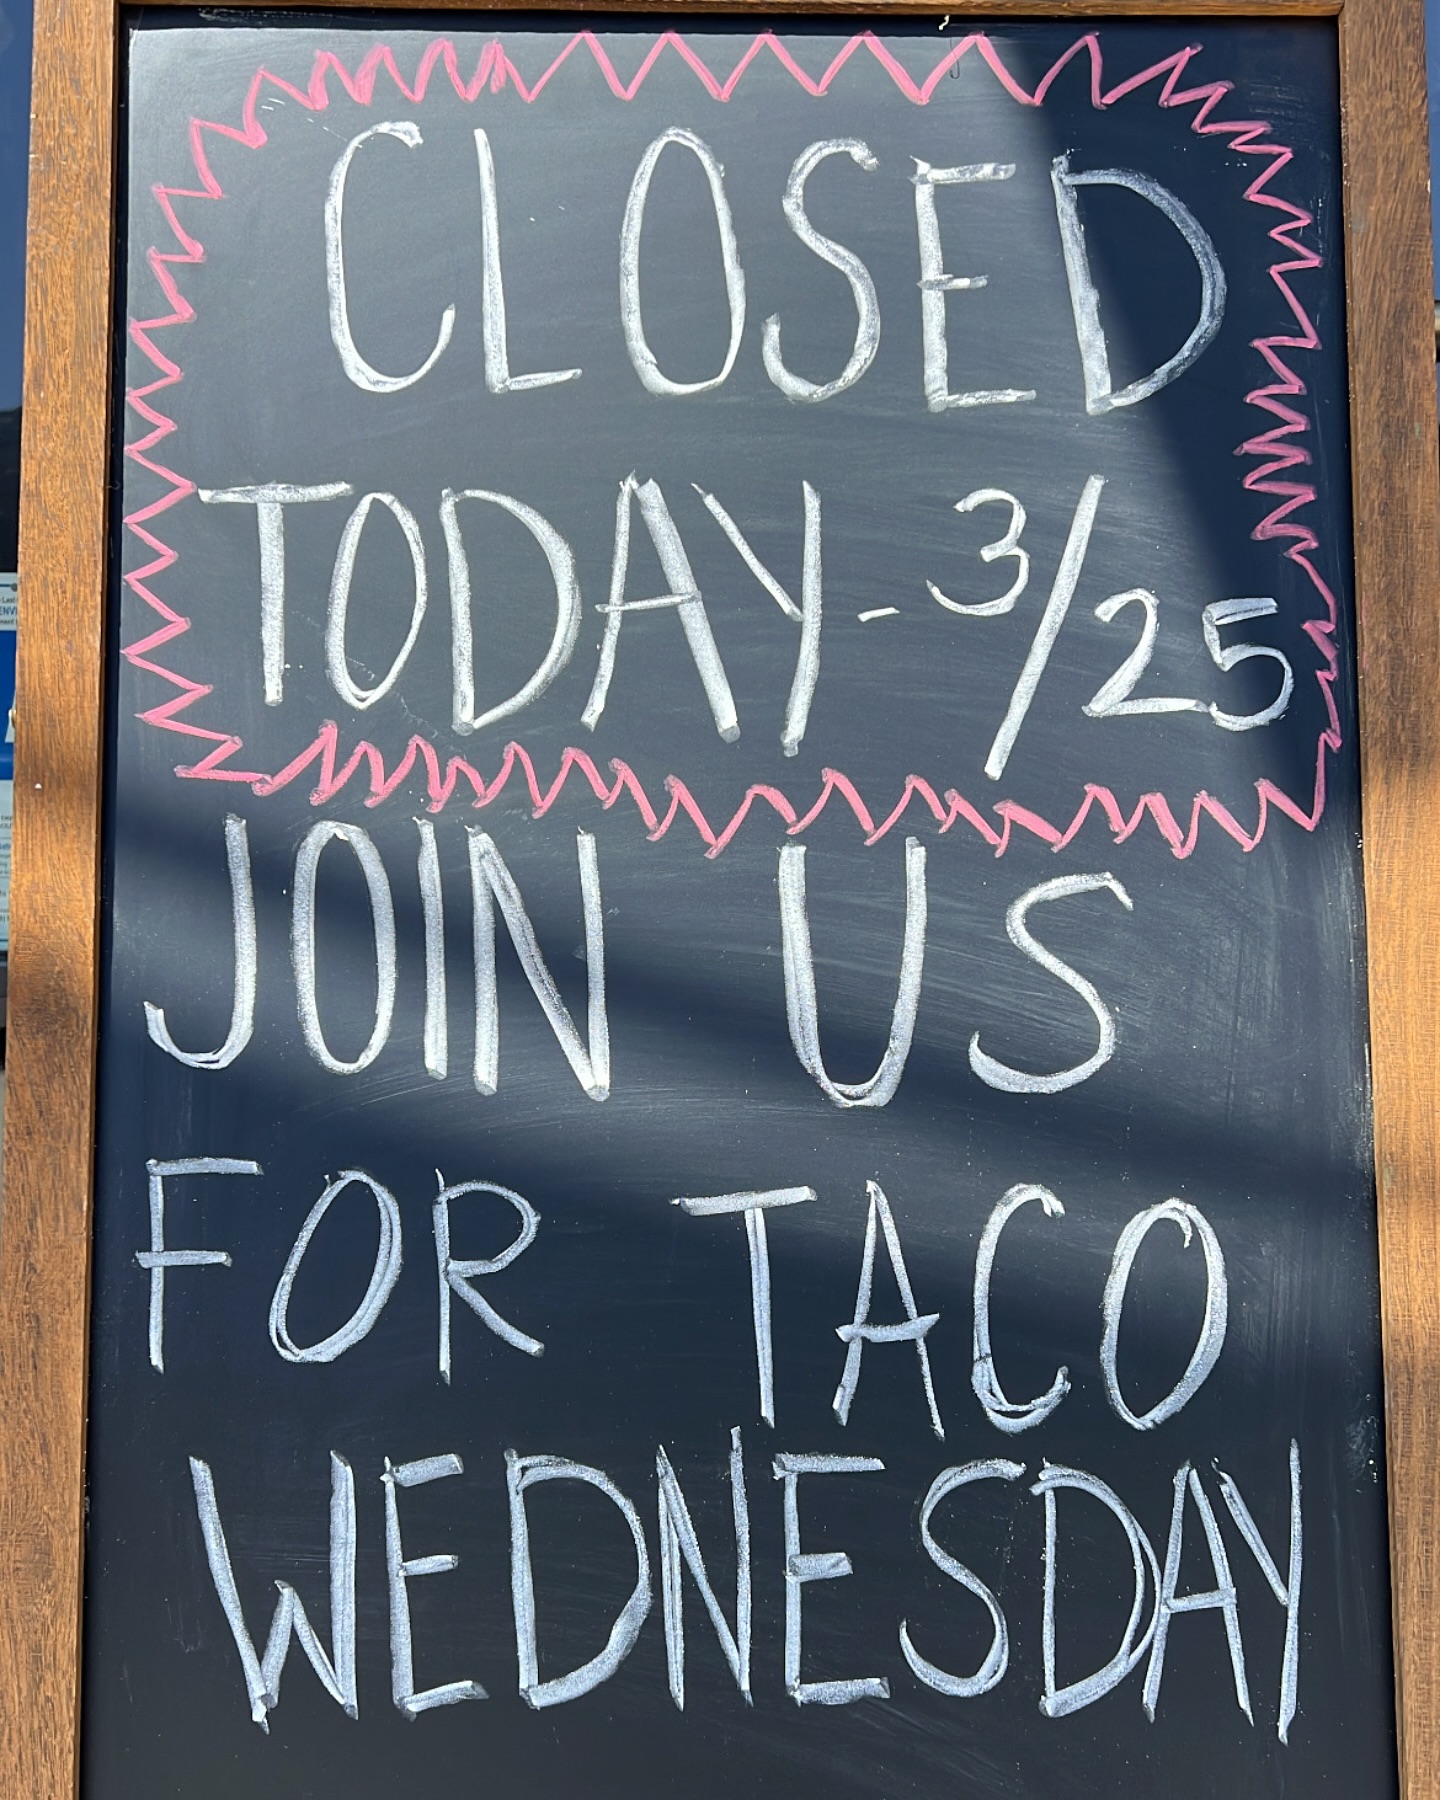 CLOSED
TODAY - 3/25
JOIN US
FOR TACO
WEDNESDAY